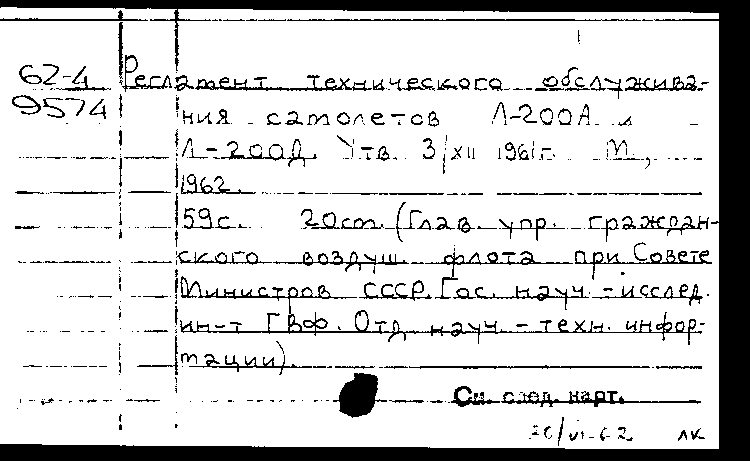 62-4 Регламент технического обслужива-
9574 ния самолетов Л-200А и
Л-200Д. Утв. 3/XII 1961г. М.,
1962.
59с. 20см. (Глав. упр. граждан-
ского воздуш. флота при Совете
Министров СССР. Гос. науч.-исслед.
ин-т ГВФ. Отд науч.-техн. инфор-
мации).
См. след. карт.
20/VI-62 ЛК